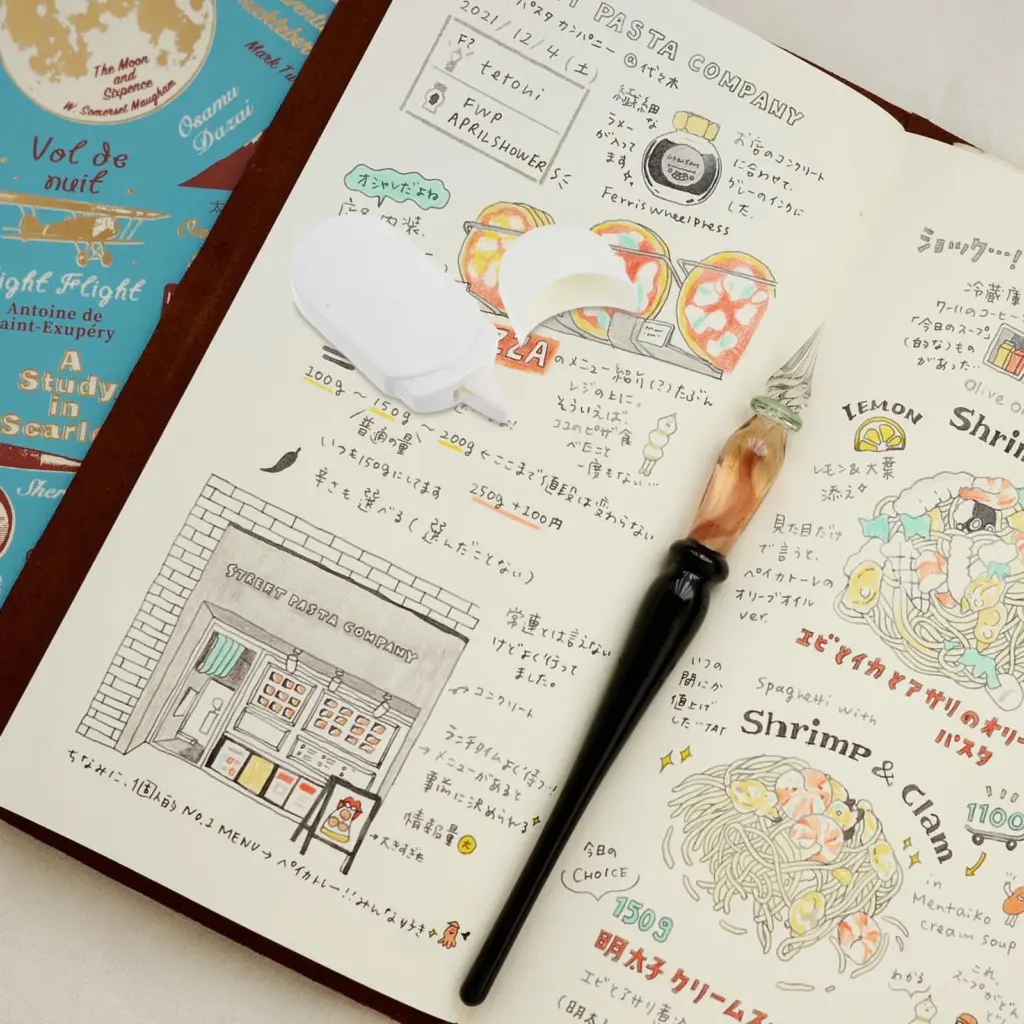 The Moon
and
Sixpence
W. Somerset Maugham
Mark
Osamu
Dazai
Vol de
nuit
Night Flight
Antoine de
Saint-Exupéry
A
Study
in
Scarle
Sher
PASTA COMPANY
パスタカンパニー @代々木
2021/12/4(土)
F?
tetoni
FWP
APRILSHOWER
繊細な
ラメー
が入って
ます
Ferris Wheel Press
お店のコンクリート
に合わせて、
グレーのインクに
した。
オシャレだよね
内装、
ZZA のメニュー紹介(?)たぶん
レジの上に。
そういえば、
ココのピザ食
べたこと
一度もない…
100g ~ 150g ~ 200g ←ここまで値段は変わらない
普通の量
250g +100円
いつも150gにしてます
辛さも選べる(選んだことない)
STREET PASTA COMPANY
常連とは言えない
けどよく行って
ました。
コンクリート
ランチタイムよく待つ…!
→メニューがあると
事前に決められる
情報量大
→大きすぎた
ちなみに、個人的 NO.1 MENU→ペイカトレー!!みんな好き
ショック…!
冷蔵庫
クールのコーヒー
「今日のスープ」
(的な)もの
があった…
LEMON
レモン&大葉
添え
olive o
Shrim
見た目だけ
で言うと、
ペイカトーレの
オリーブオイル
ver.
エビとイカとアサリのオリー
パスタ
いつの
間にか
値上げ
した…
Spaghetti with
Shrimp & Clam
in
Mentaiko
cream soup
1100
今日の
CHOICE
150g
明太子クリームス
エビとアサリ
(明太
わかる
これ、
スープ